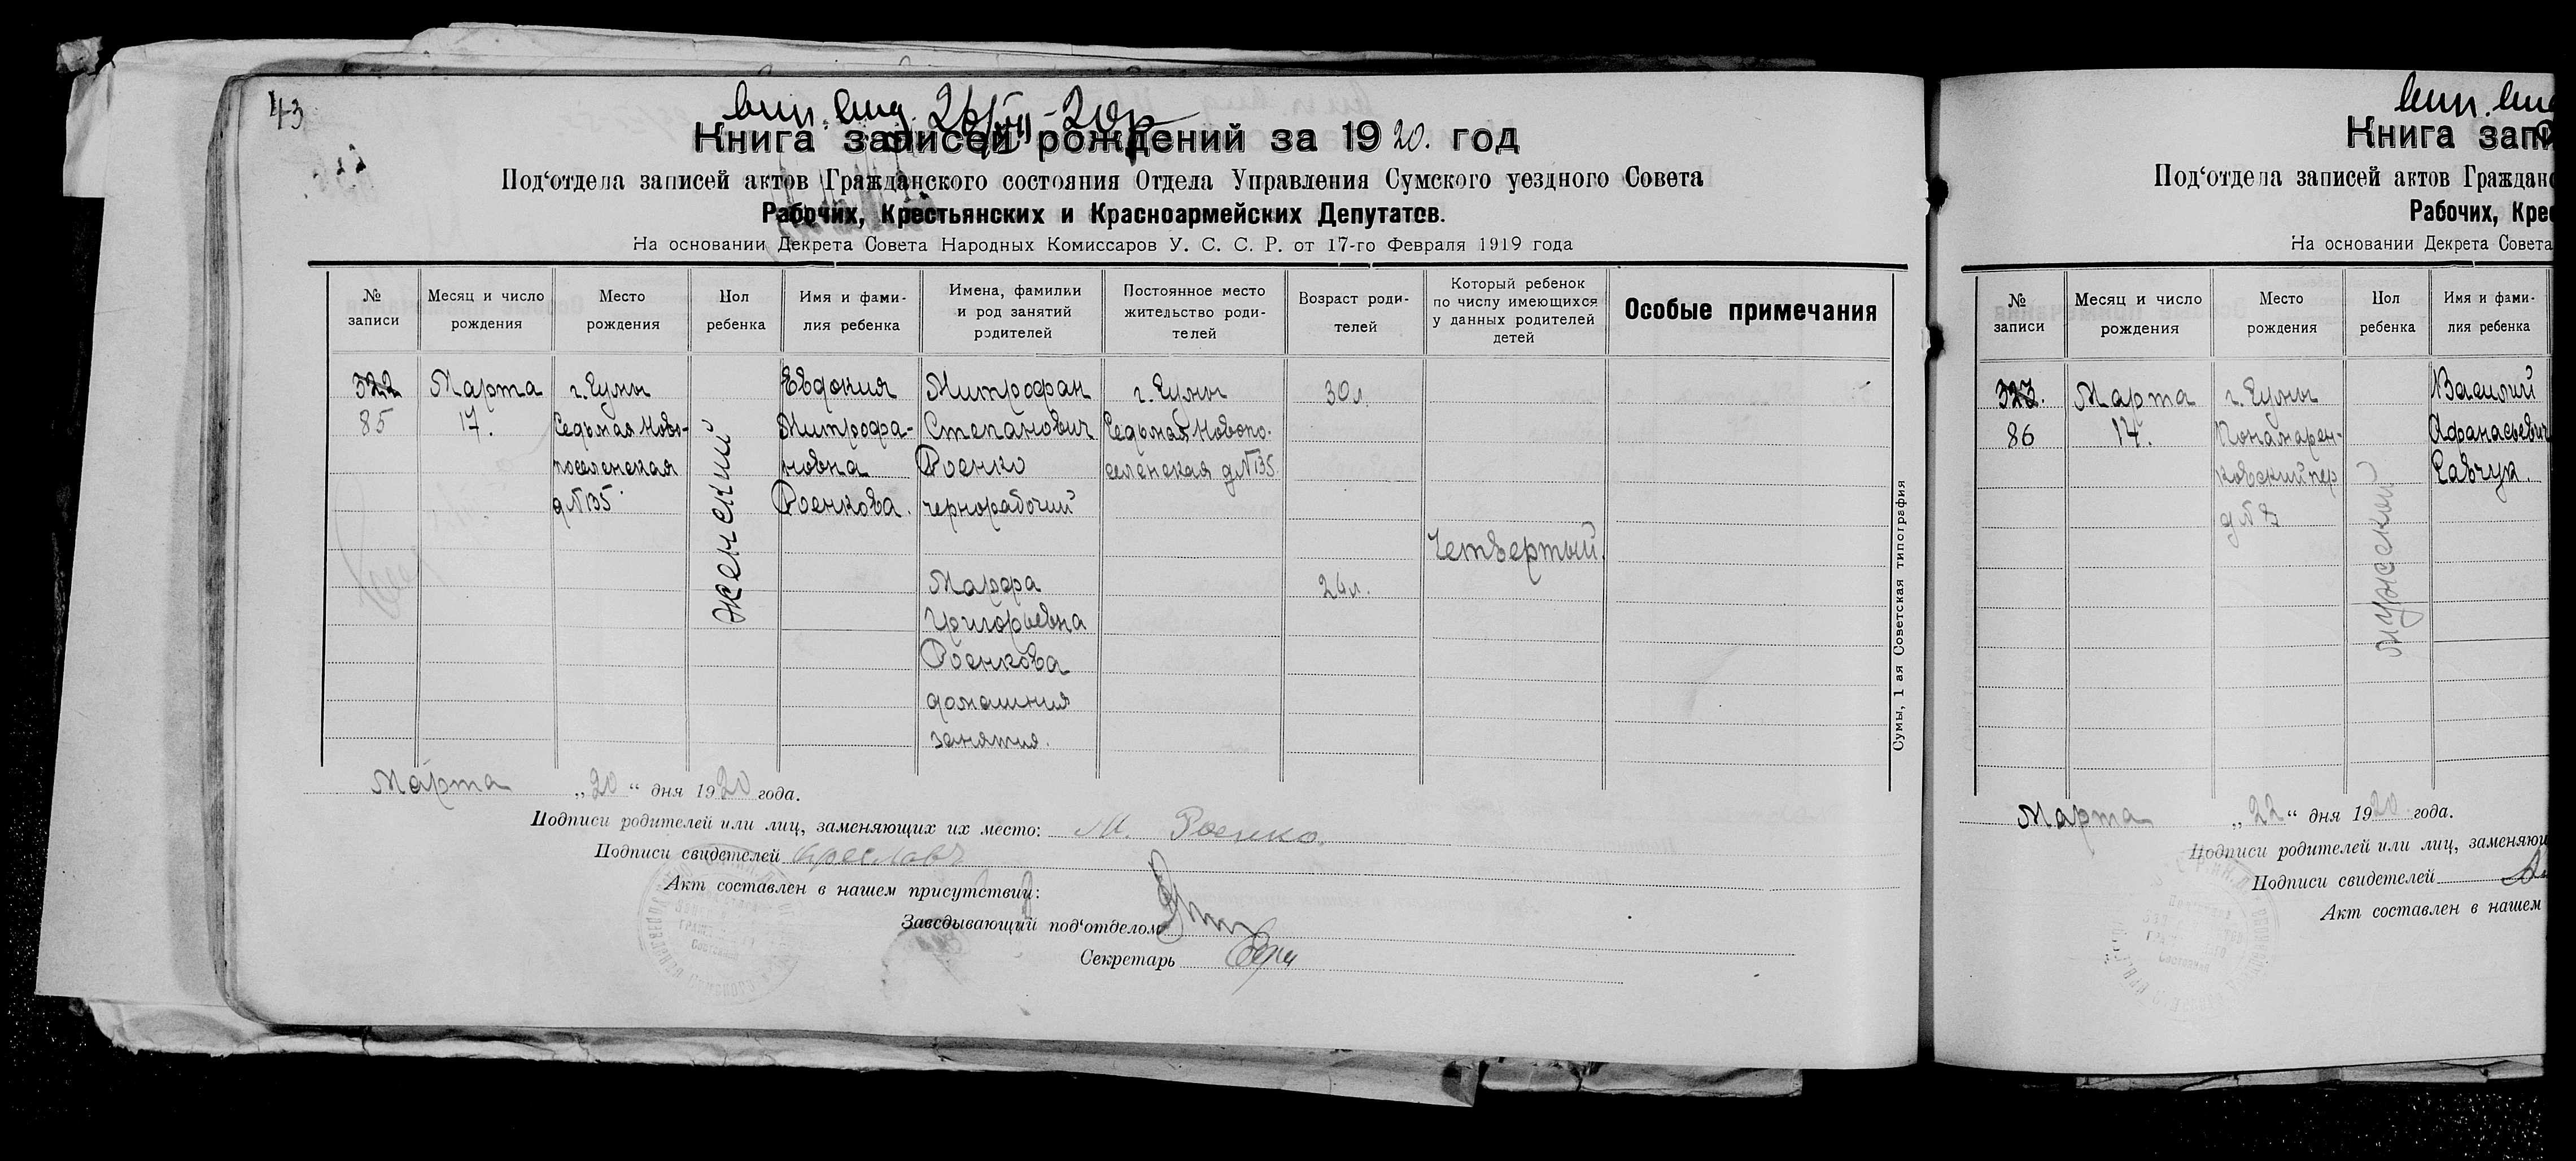 43
вып. 26/VIII-20р
Книга записей рождений за 1920. год
Под‘отдела записей актов Гражданского состояния Отдела Управления Сумского уездного Совета
Рабочих, Крестьянских и Красноармейских Депутатов.
На основании Декрета Совета Народных Комиссаров У. С. С. Р. от 17-го Февраля 1919 года
№ записи
Месяц и число рождения
Место рождения
Пол ребенка
Имя и фами-
лия ребенка
Имена, фамилии
и род занятий
родителей
Постоянное место
жительство роди-
телей
Возраст роди-
телей
Который ребенок
по числу имеющихся
у данных родителей
детей
Особые примечания
322
85
Марта
17.
г. Сумы
Седьмая Ново-
поселенская
д №135
женский
Евдокия
Митрофа-
новна
Роенкова.
Митрофан
Степанович
Роенко
чернорабочий
Марфа
Григорьевна
Роенкова
домашния
занятия.
г. Сумы
Седьмая Новопо-
селенская д №135.
30 л.
26 л.
Четвертый.
Сумы, 1 ая Советская типография
Марта „20“ дня 1920 года.
Подписи родителей или лиц, заменяющих их место: М. Роенко.
Подписи свидетелей
Акт составлен в нашем присутствии:
Заведывающий под‘отделом
Секретарь
Книга запи
Под‘отдела записей актов Гражданс
Рабочих, Крес
На основании Декрета Совета
№ записи
Месяц и число рождения
Место рождения
Пол ребенка
Имя и фами-
лия ребенка
323.
86
Марта
14.
г. Сумы
Понамарен-
ковский пер
д №
мужской
Василий
Афанасьевич
Савчук.
Марта „22“ дня 1920 года.
Подписи родителей или лиц, заменяющ
Подписи свидетелей
Акт составлен в нашем